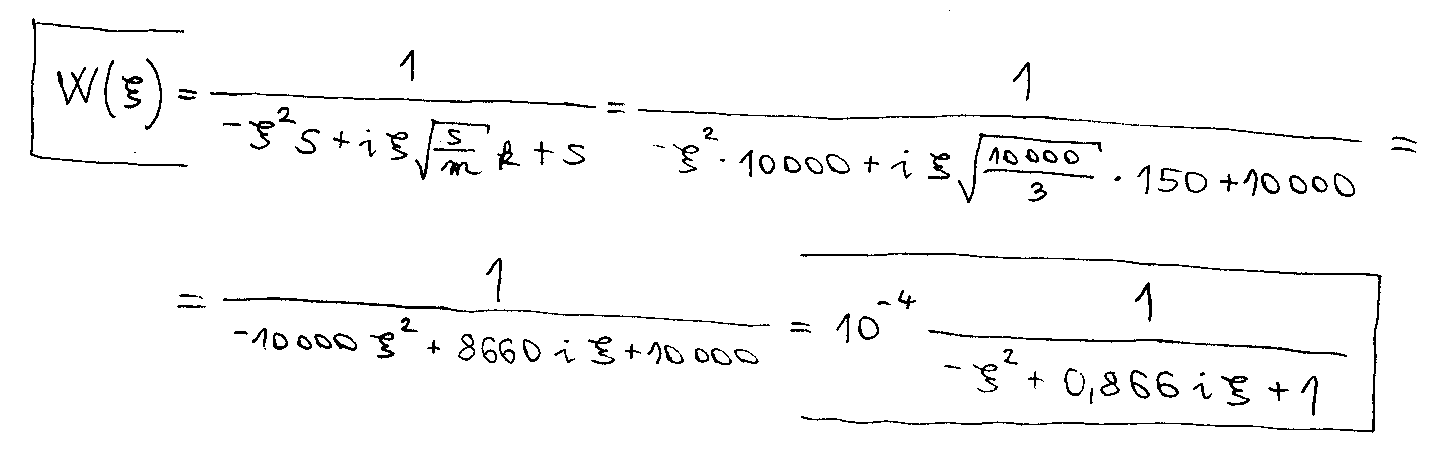 W(ξ) = 1 / (-ξ² s + i ξ √(s/m) k + s) = 1 / (-ξ² · 10000 + i ξ √(10000/3) · 150 + 10000) =
= 1 / (-10000 ξ² + 8660 i ξ + 10000) = 10⁻⁴ 1 / (-ξ² + 0,866 i ξ + 1)